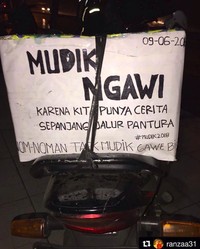 09-06-20
MUDIK
NGAWI
KARENA KITA PUNYA CERITA
SEPANJANG JALUR PANTURA
#MUDIK2018
NOM-NOMAN TAK MUDIK GAWE B
ranzaa31